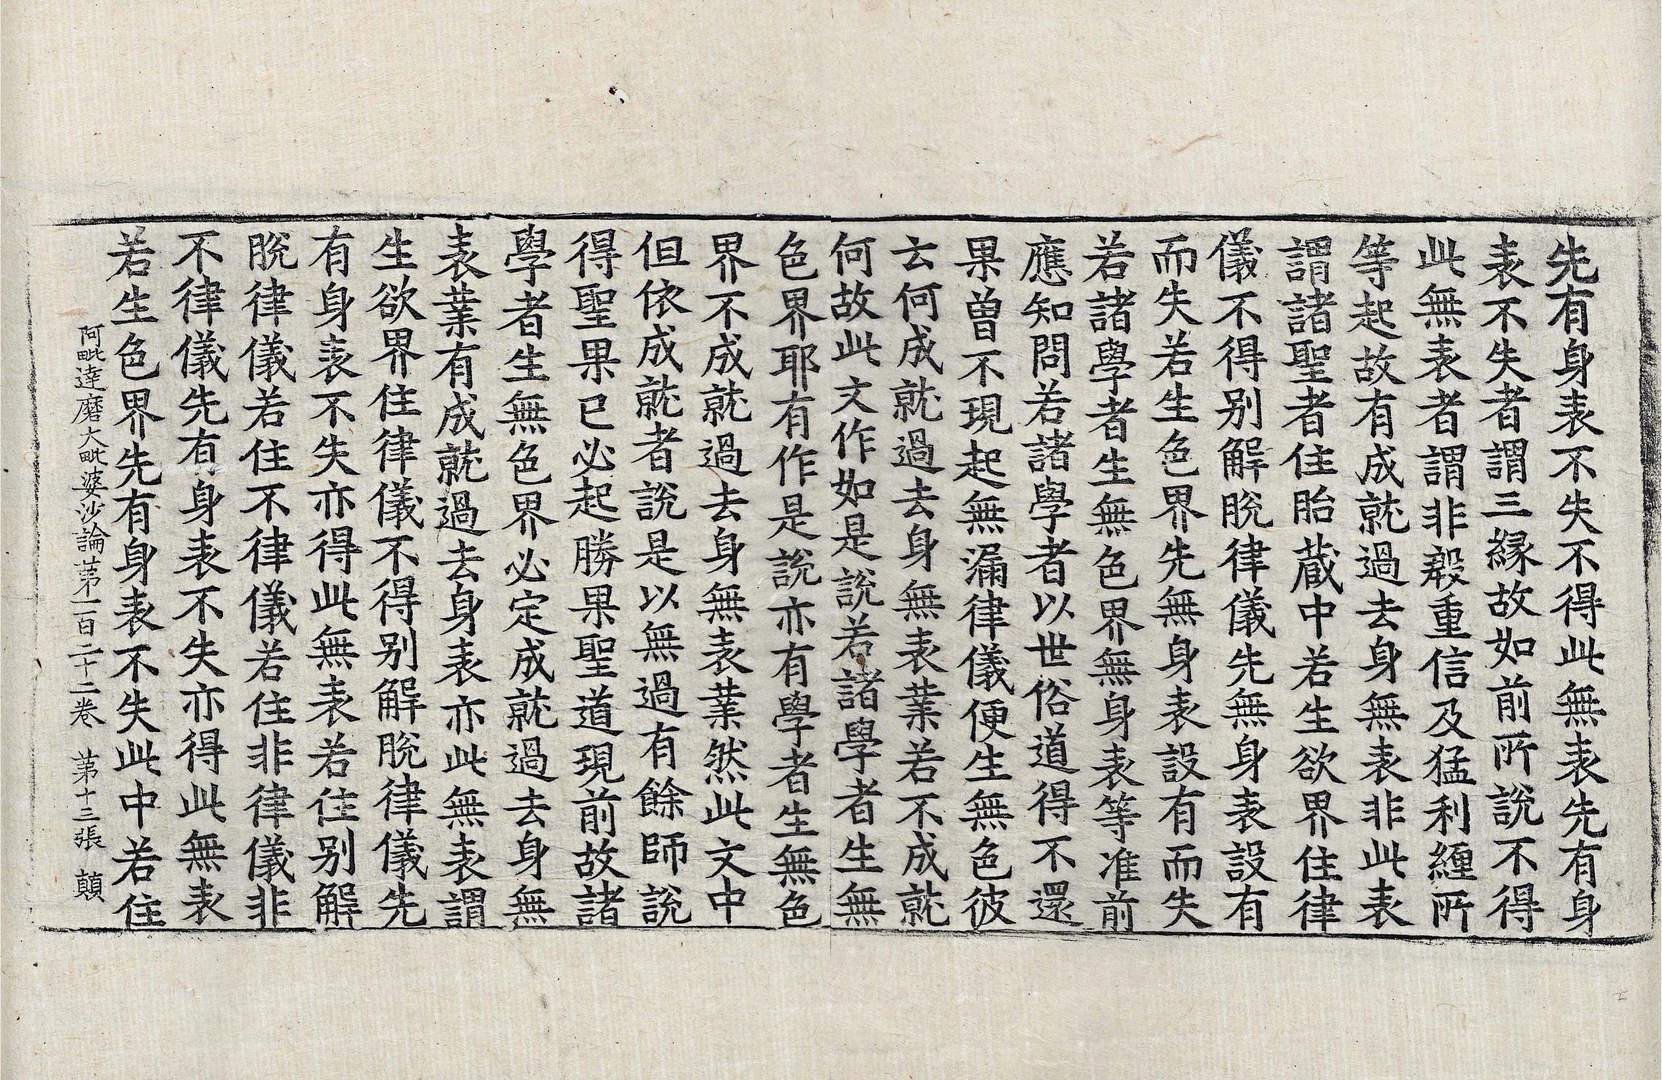 先有身表不失不得此無表先有身
表不失者謂三縁故如前所說不得
此無表者謂非殷重信及猛利纏所
等起故有成就過去身無表非此表
謂諸聖者住胎蔵中若生欲界住律
儀不得别解脫律儀先無身表設有
而失若生色界先無身表設有而失
若諸學者生無色界無身表等准前
應知問若諸學者以世俗道得不還
果曾不現起無漏律儀便生無色彼
云何成就過去身無表業若不成就
何故此文作如是說若諸學者生無
色界耶有作是說亦有學者生無色
界不成就過去身無表業然此文中
但依成就者說是以無過有餘師說
得聖果已必起勝果聖道現前故諸
學者生無色界必定成就過去身無
表業有成就過去身表亦此無表謂
生欲界住律儀不得别解脫律儀先
有身表不失亦得此無表若住别解
脫律儀若住不律儀若住非律儀非
不律儀先有身表不失亦得此無表
若生色界先有身表不失此中若住
阿毗達磨大毗婆沙論苐一百二十二卷 苐十三張 顛